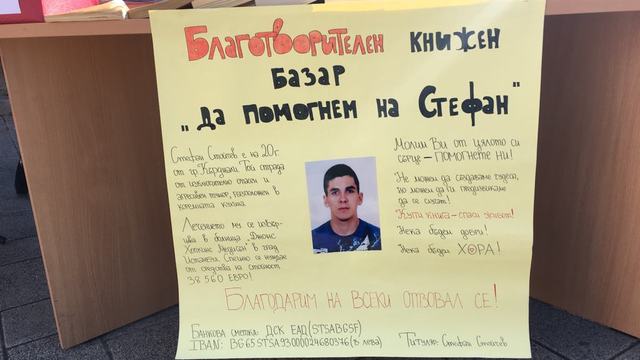 БЛАГОТВОРИТЕЛЕН КНИЖЕН
БАЗАР
„ДА ПОМОГНЕМ НА СТЕФАН"
Стефан Стойтов е на 20г.
от гр. Кърджали. Той страда
от изключително опасен и
агресивен тумор, разположен в
коремната кухина.
Лечението му се извър-
шва в болница "Джонс
Хопкинс Медисън" в град
Истанбул. Спешно се нуждае
от средства на стойност
38 560 ЕВРО!
Молим Ви от цялото си
сърце - ПОМОГНЕТЕ НИ!
Не можем да създаваме чудеса,
но можем да ги
да се случат!
Купи книга - спаси живот!
Нека бъдем добри!
Нека бъдем ХОРА!
БЛАГОДАРИМ НА ВСЕКИ ОТЗОВАЛ СЕ!
Банкова сметка: ДСК ЕАД (STSABGSF)
IBAN: BG65STSA93000024680376 (в лева)
Титуляр: Стефан Стойтов